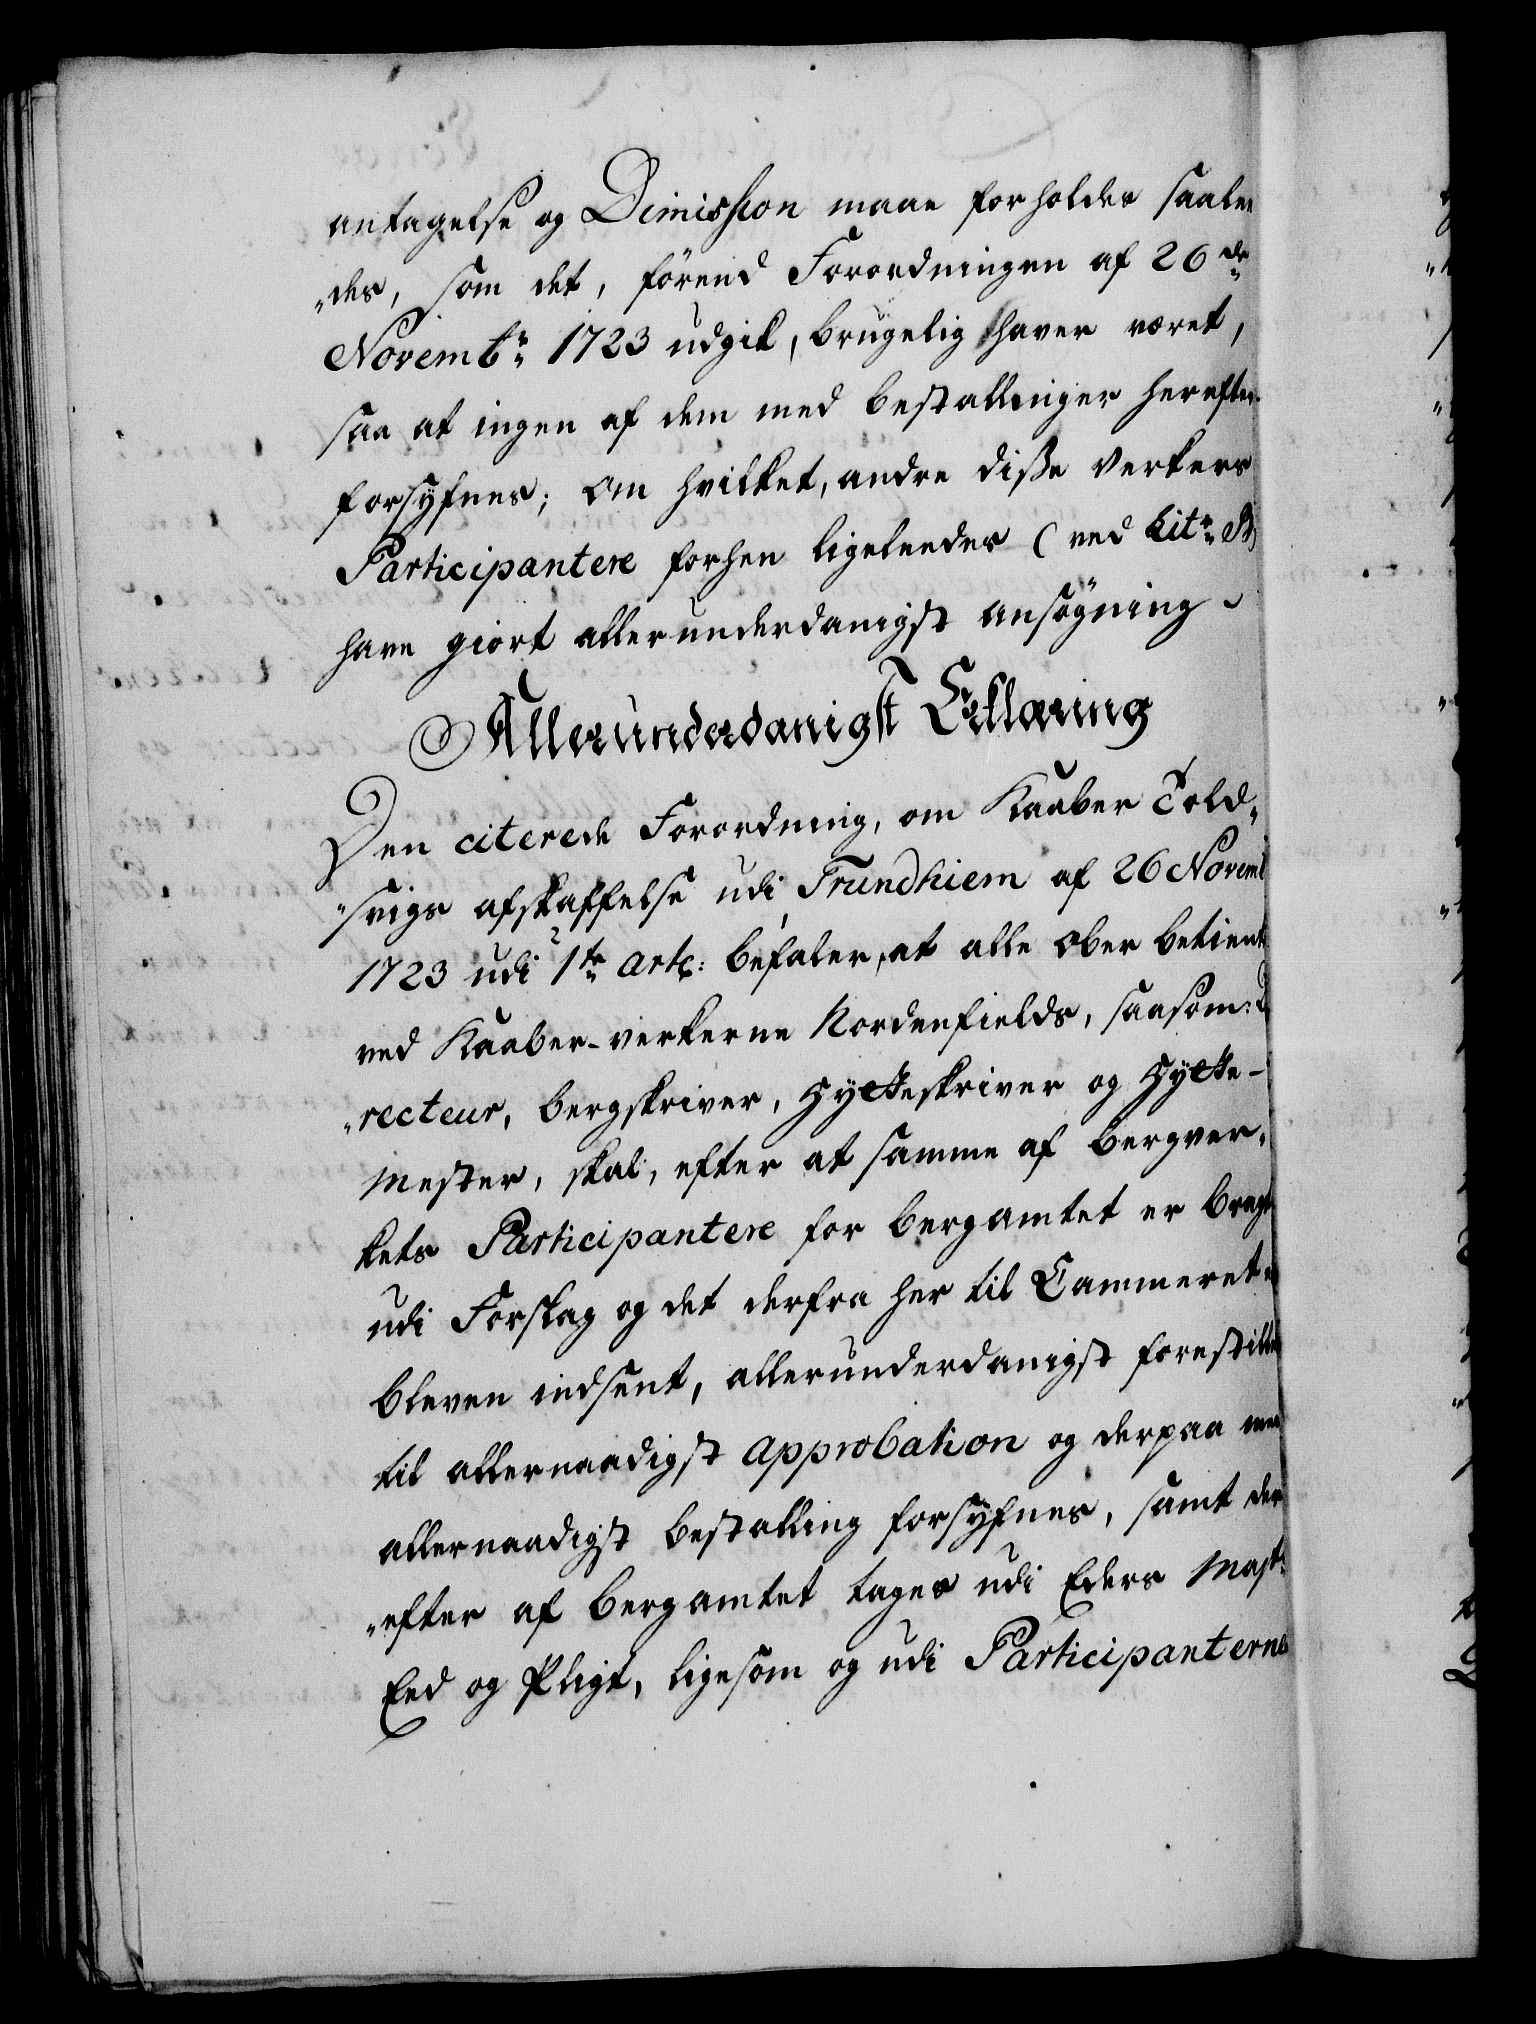 antagelse og Dimission maae forholdes saale
"des, som det, förend Forordningen af 26de
Novembr 1723 udgik, brugelig haver været,
saa at ingen af dem med bestallinger herefter
forsyfnes; Om hvilket, andre disse Verkers
Participantere forhen ligeleedes (ved Litr B)
have giort allerunderdanigst ansögning
Allerunderdanigst Erklæring
Den citerede Forordning, om Kaaber Told-
"svigs afskaffelse udi Trundhiem af 26 Novemb
1723 udi 1te artc: befaler, at alle Ober betient
ved Kaaber-verkerne Nordenfields, saasom: Di
"recteur, bergskriver, Hytteskriver og Hytte-
Mester, skal, efter at samme af bergver-
kets Participantere for bergamtet er bragt
udi Forslag og det derfra her til Cammeret er
bleven indsent, allerunderdanigst forestilles
til allernaadigst approbation og derpaa med
allernaadigst bestalling forsyfnes, samt der
"efter af bergamtet tages udi Eders Mayts
Eed og Pligt, ligesom og udi Participanternes